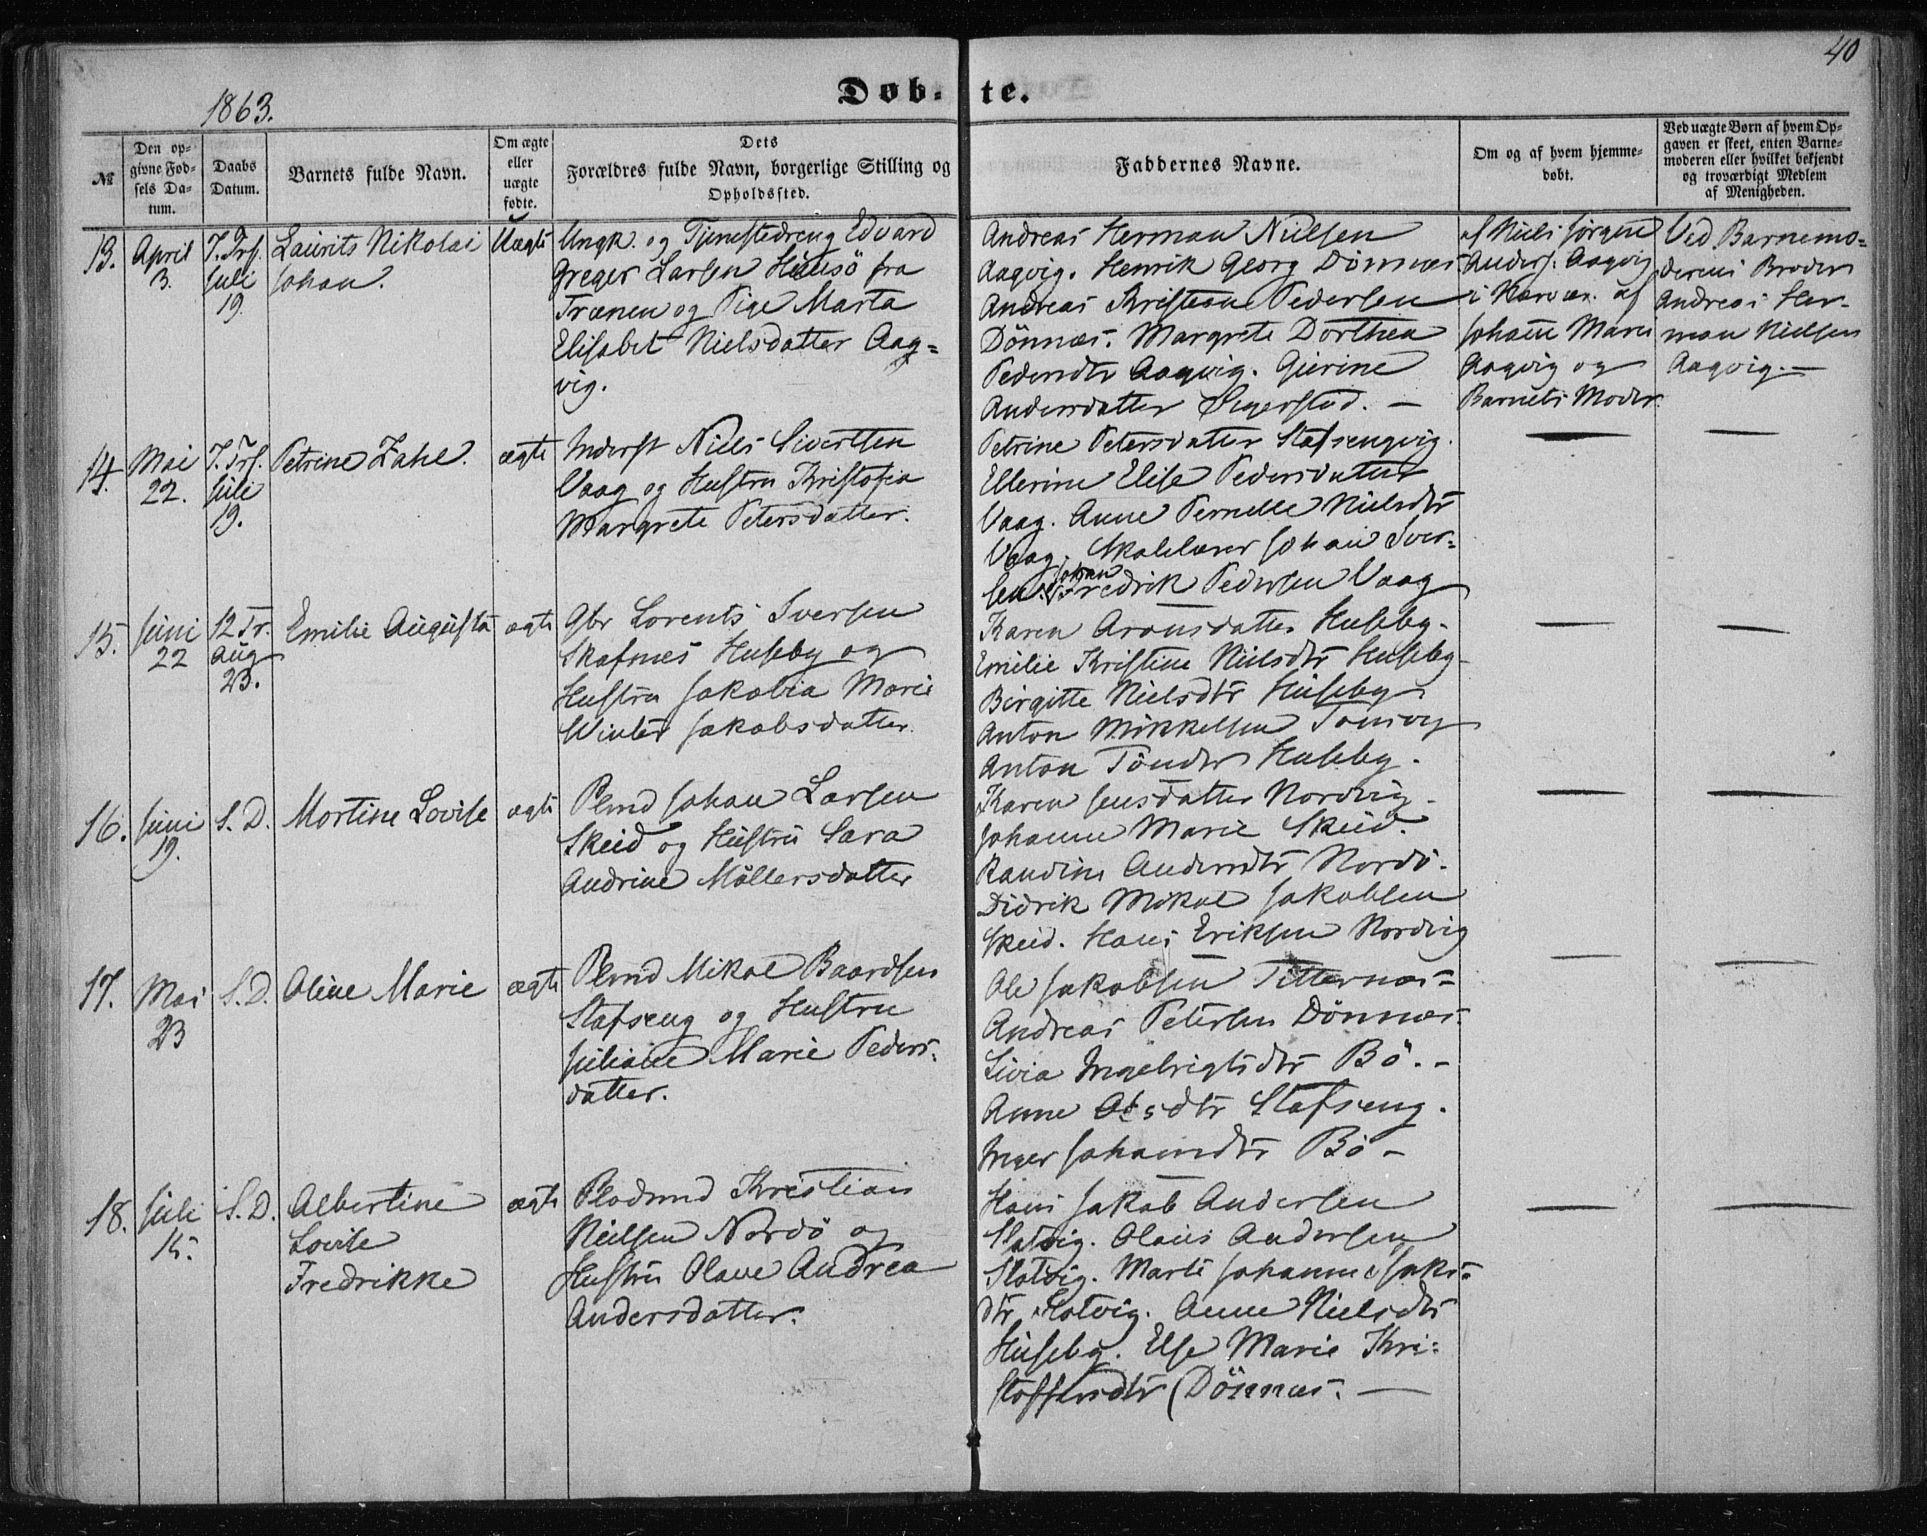 40
1863.
Døb-te.
№
Den op-
givne Fød-
sels Da-
tum.
Daabs
Datum.
Barnets fulde Navn.
Om ægte
eller
uægte
fødte.
Dets
Forældres fulde Navn, borgerlige Stilling og
Opholdssted.
Faddernes Navne.
Om og af hvem hjemme-
døbt.
Ved uægte Børn af hvem Op-
gaven er skeet, enten Barne-
moderen eller hvilket bekjendt
og troværdigt Medlem
af Menigheden.
13.
April
3.
7. Trf.
Juli
19.
Laurits Nikolai
Johan.
Uægte
Ungk. og Tjenestedreng Edvard
Greger Larsen Huusö fra
Trænen og Pige Marta
Elisabet Nielsdatter Aag=
vig.
Andreas Herman Nielsen
Aagvig. Henrik Georg Dönnæs.
Andreas Kristian Pedersen
Dönnæs. Margrete Dorthea
Pedersdtr Aagvig. Gjerine
Andersdatter Segerstad. —
af Niels Jörgen
Anders. Aagvig
i Nærvær. af
Johan Maria
Aagvig og
Barnets Moder.
Ved Barnemo=
derens Broder
Andreas Her-
man Nielsen
Aagvig. —
14.
Mai
22.
7. Trf.
Juli
19.
Petrine Zahl.
ægte
Inderst Niels Sivertsen
Vaag og Hustru Kristofia
Margrete Petersdatter.
Petrine Petersdatter Stafsengvig.
Ellerine Elise Pedersdatter
Vaag. Anne Pernelle Nielsdtr
Vaag. Skolelærer Johan Iver=
sen. Johan Fredrik Pedersen Vaag
—
—
15.
Juni
22
12 Tr.
Aug
23.
Emilie Augusta
ægte
Gbr Lorents Iversen
Skafnes Huseby og
Hustru Jakobia Marie
Winter Jakobsdatter.
Karen Aronsdatter Huseby.
Emilie Kristine Nielsdtr Huseby.
Birgitte Nielsdtr Huseby
Anton Mikkelsen Tomvig
Anton Tönder Huseby.
—
—
16.
Juni
19.
S. D.
Mortine Lovise
ægte
Plmd Johan Larsen
Skeid og Hustru Sara
Andrine Möllersdatter
Karen Jensdatter Nordvig.
Johanne Marie Skeid.
Randine Andersdtr Nordö.
Didrik Mikal Jakobsen
Skeid. Hans Eriksen Nordvig
—
—
17.
Mai
23
S. D.
Oline Marie
ægte
Plmd Mikal Baardsen
Stafseng og Hustru
Juliane Marie Peders-
datter.
Ole Jakobsen Titternæs-
Andreas Petersen Dönnæs.
Livia Ingebrigtsdtr Bö. -
Anne Olsdtr Stafseng.
Inger Johansdtr Bö -
—
—
18.
Juli
15.
S. D.
Albertine
Lovise
Fredrikke
ægte
Pladsmd Kristian
Nielsen Nordö og
Hustru Olave Andrea
Andersdatter.
Hans Jakob Andersen
Slotvig. Olaus Andersen
Slotvig. Marte Johanne Isaks=
dtr Slotvig. Anne Nielsdtr
Huseby. Else Marie Kri=
stoffersdtr Dönnæs. —
—
—